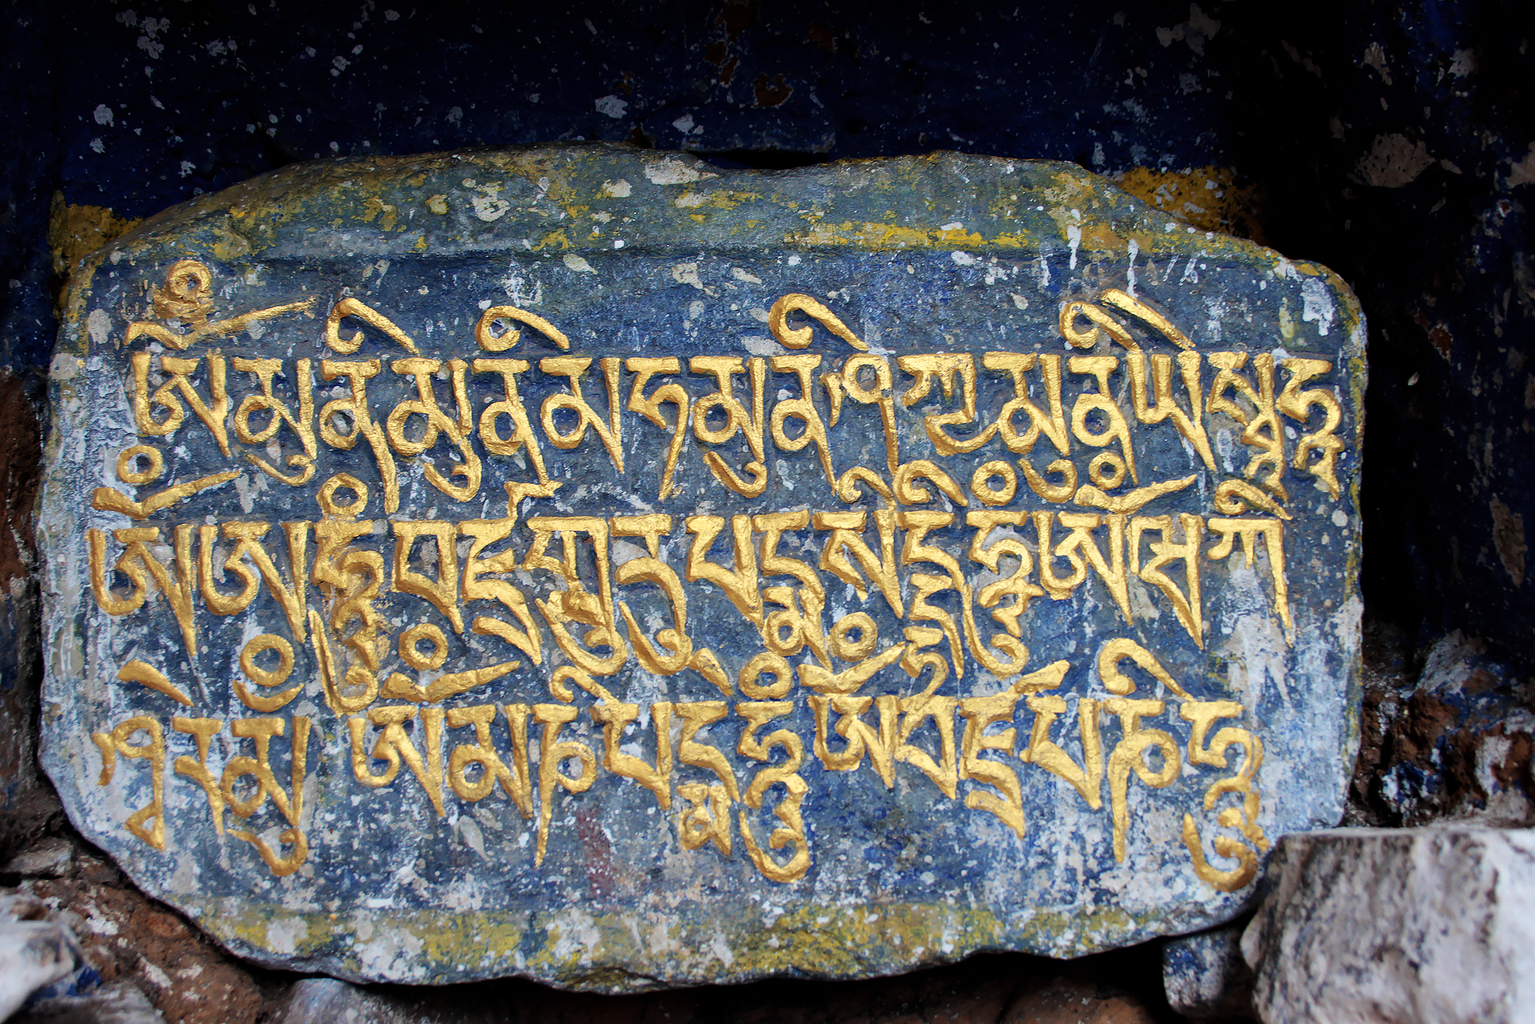 ཨོཾམུནིམུནིམཧམུནིཤཀྱམུནིཡེསྭཧཱ
ཨོཾཨཧཱུྃབཛྲགུརུཔདྨསིདྡྷིཧཱུྃཨོཾཝགི
ཤྭེརམུྃཨོཾམཎིཔདྨེཧཱུྃཨོཾབཛྲཔཎིཧཱུ